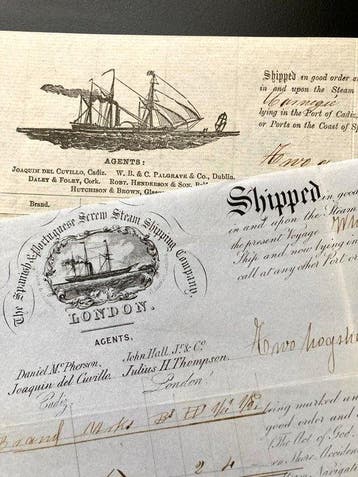 Shipped in good order a
in and upon the Steam
lying in the Port of Cadiz
or Ports on the Coast of S
AGENTS:
JOAQUIN DEL CUVILLO, Cadiz. W. B. & C. PALGRAVE & Co., Dublin.
DALEY & FOLEY, Cork. ROBT. HENDERSON & SON,
HUTCHISON & BROWN,
Brand.
Shipped in good
in and upon the Steam
the present Voyage
Ship and now lying
call at any Port
The Spanish & Portuguese Screw Steam Shipping Company,
LONDON.
AGENTS,
Daniel McPherson, John Hall, Jr. & Co.
Joaquin del Cuvillo. Julius H. Thompson.
Cadiz London
Two hogsh
being marked an
good order and
(the Act of God
Accidents
Navigate